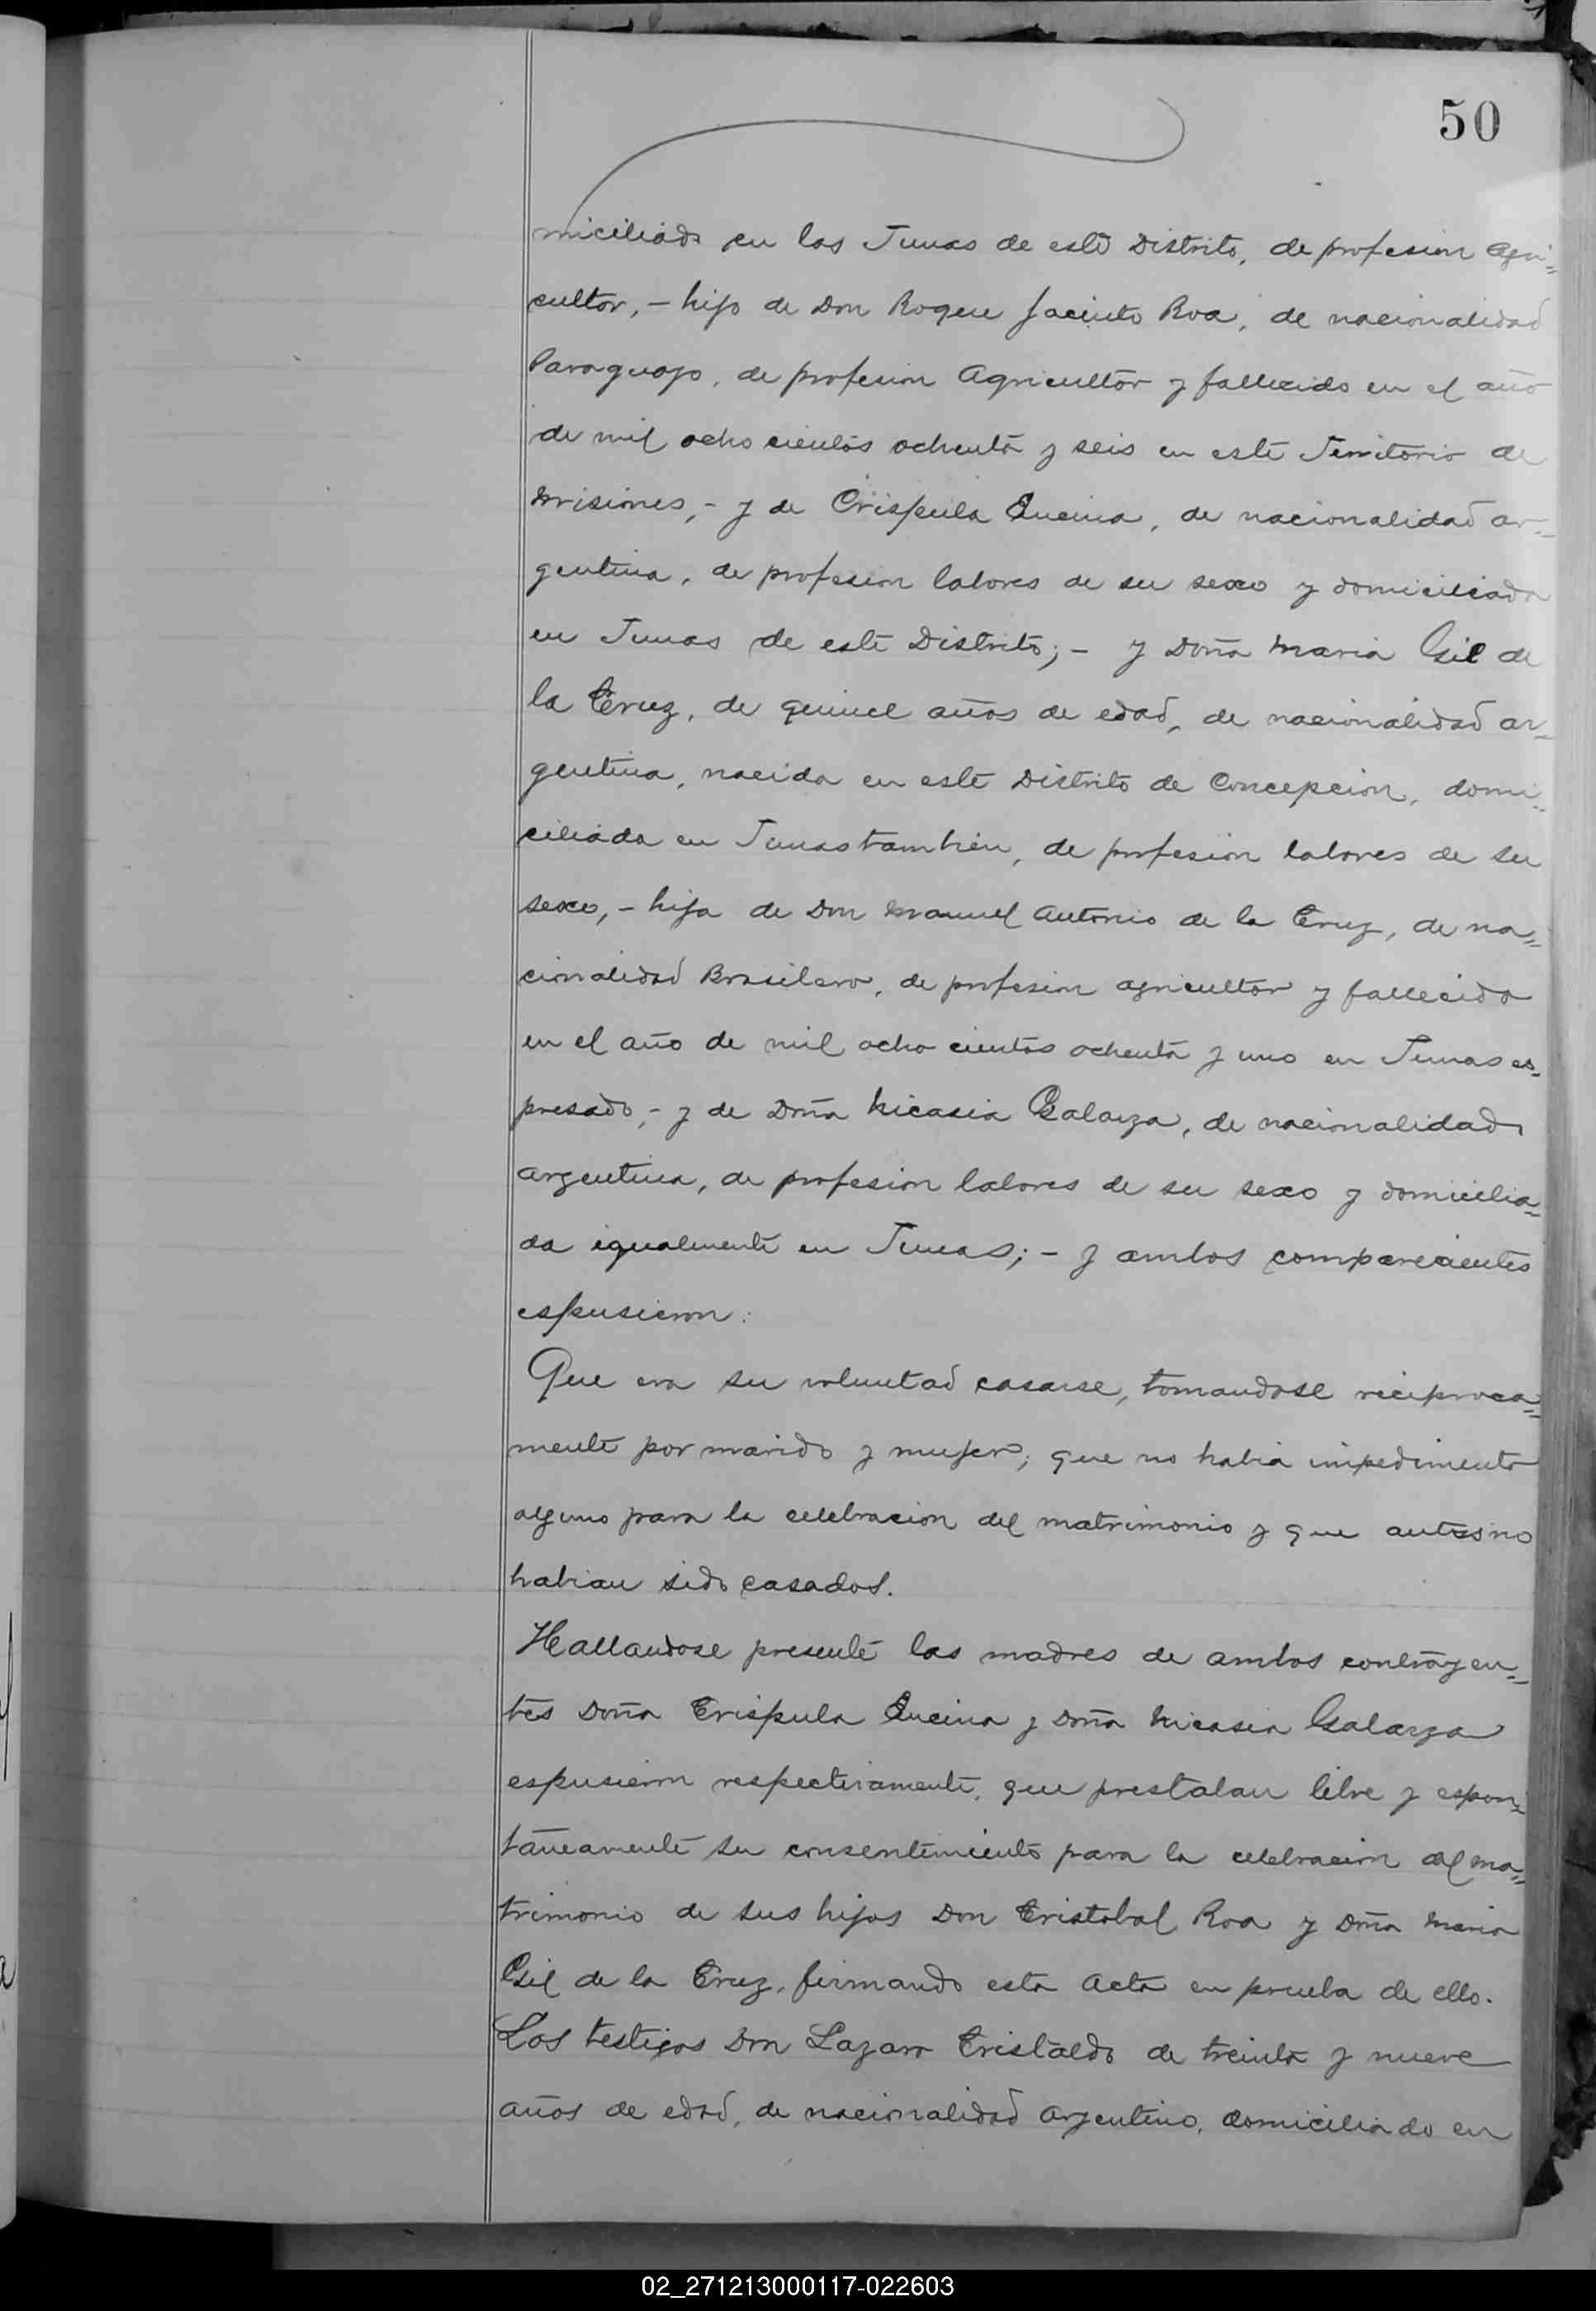 50
miciliado en las Tunas de este Distrito, de profesion Agri=
cultor, - hijo de Don Roque Jacinto Roa, de nacionalidad
Paraguayo, de profesion Agricultor y fallecido en el año
de mil ocho cientos ochenta y seis en este Territorio de
Misiones, - y de Crispula Encina, de nacionalidad ar=
gentina, de profesion labores de su sexo y domiciliada
en Tunas de este Distrito; - y Doña Maria Gil de
la Cruz, de quince años de edad, de nacionalidad ar=
gentina, nacida en este Distrito de Concepcion, domi=
ciliada en Tunas tambien, de profesion labores de su
sexo, - hija de Don Manuel Antonio de la Cruz, de na=
cionalidad Brasilero, de profesion agricultor y fallecido
en el año de mil ocho cientos ochenta y uno en Tunas es=
presado, - y de Doña Nicasia Galarza, de nacionalidad
argentina, de profesion labores de su sexo y domicilia=
da igualmente en Tunas; - y ambos comparecientes
espusieron:
Que era su voluntad casarse, tomandose reciproca=
mente por marido y mujer; que no habia impedimento
alguno para la celebracion del matrimonio y que antes no
habian sido casados.
Hallandose presente las madres de ambos contrayen=
tes Doña Crispula Encina y Doña Nicasia Galarza
espusieron respectivamente, que prestaban libre y espon=
táneamente su consentimiento para la celebracion del ma=
trimonio de sus hijos Don Cristobal Roa y Doña Maria
Gil de la Cruz, firmando esta Acta en prueba de ello.
Los testigos Don Lazaro Cristaldo de treinta y nueve
años de edad, de nacionalidad Argentino, domiciliado en
02_271213000117-022603